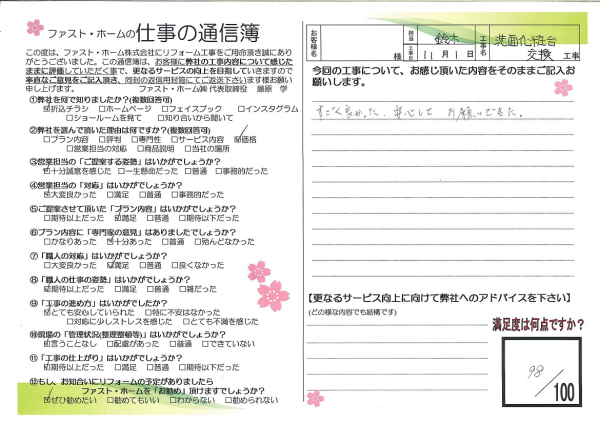 ファスト・ホームの仕事の通信簿
この度は、ファスト・ホーム㈱にリフォーム工事をご用命頂き誠にあり
がとうございました。この通信簿は、お客様に弊社の工事内容について感じた
ままに評価していただく事で、更なるサービスの向上を目指していきますので
率直なご意見をご記入頂き、同封の返信用封筒にてご返送下さいます様お願い
申し上げます。 ファスト・ホーム㈱ 代表取締役 藤原 学
①弊社を何で知りましたか?(複数回答可)
☑折込チラシ □ホームページ □フェイスブック □インスタグラム
□ショールームを見て □知り合いから聞いて
②弊社を選んで頂いた理由は何ですか?(複数回答可)
□プラン内容 □評判 □専門性 □サービス内容 ☑価格
□営業担当の対応 □商品説明 □当社の場所
③営業担当の「ご提案する姿勢」はいかがでしょうか?
☑十分誠意を感じた □一生懸命だった □普通 □事務的だった
④営業担当の「対応」はいかがでしょうか?
☑大変良かった □満足 □普通 □事務的だった
⑤ご提案させて頂いた「プラン内容」はいかがでしょうか?
□期待以上だった ☑満足 □普通 □期待以下だった
⑥プラン内容に「専門家の意見」はありましたでしょうか?
□かなりあった ☑十分あった □普通 □殆んどなかった
⑦「職人の対応」はいかがでしょうか?
□大変良かった ☑満足 □普通 □良くなかった
⑧「職人の仕事の姿勢」はいかがでしょうか?
☑期待以上だった □満足 □普通 □雑だった
⑨「工事の進め方」はいかがでしょうか?
☑とても安心していられた □特に不安はなかった
□対応に少しストレスを感じた □とても不満を感じた
⑩現場の「管理状況(整理整頓等)」はいかがでしょうか?
☑言うことなし □配慮があった □普通 □できていない
⑪「工事の仕上がり」はいかがでしょうか?
☑期待以上だった □満足 □普通 □期待以下だった
⑫もし、お知合いにリフォームの予定がありましたら
ファスト・ホームを「お勧め」頂けますでしょうか?
☑ぜひ勧めたい □勧めてもいい □わからない □勧められない
お客様名 様 担当 鈴木 工事名 洗面化粧台
工事日 11月1日 交換 工事
今回の工事について、お感じ頂いた内容をそのままご記入お
願いします。
すごく良かった。安心して お願いできた。
【更なるサービス向上に向けて弊社へのアドバイスを下さい】
(どの様な内容でも結構です)
満足度は何点ですか?
98
/100